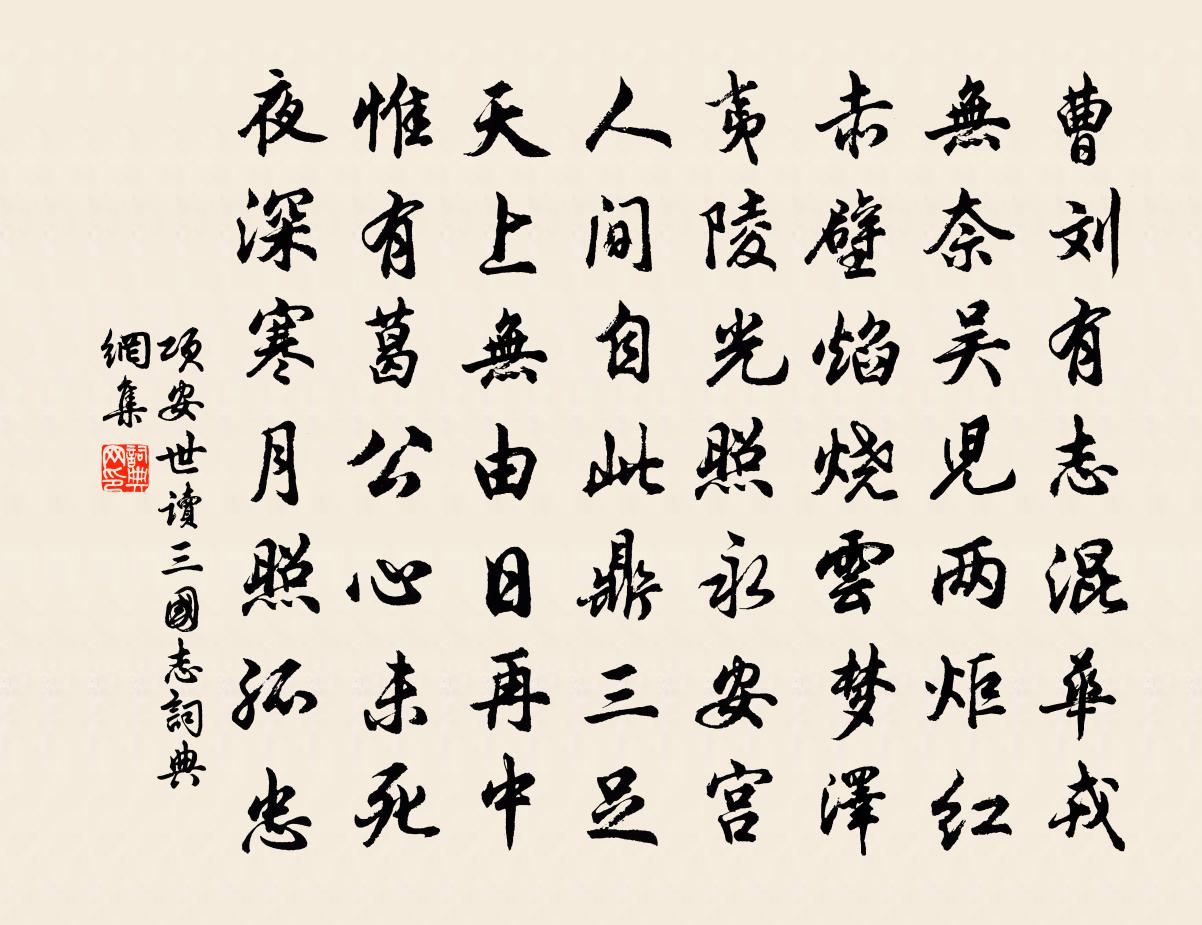 曹刘有志混華戎
無奈吴児两炬红
赤壁焰烧雲梦澤
夷陵光照永安宫
人间自此鼎三足
天上無由日再中
惟有葛公心未死
夜深寒月照孤忠
项安世讀三國志詞典
網集
詞典網印